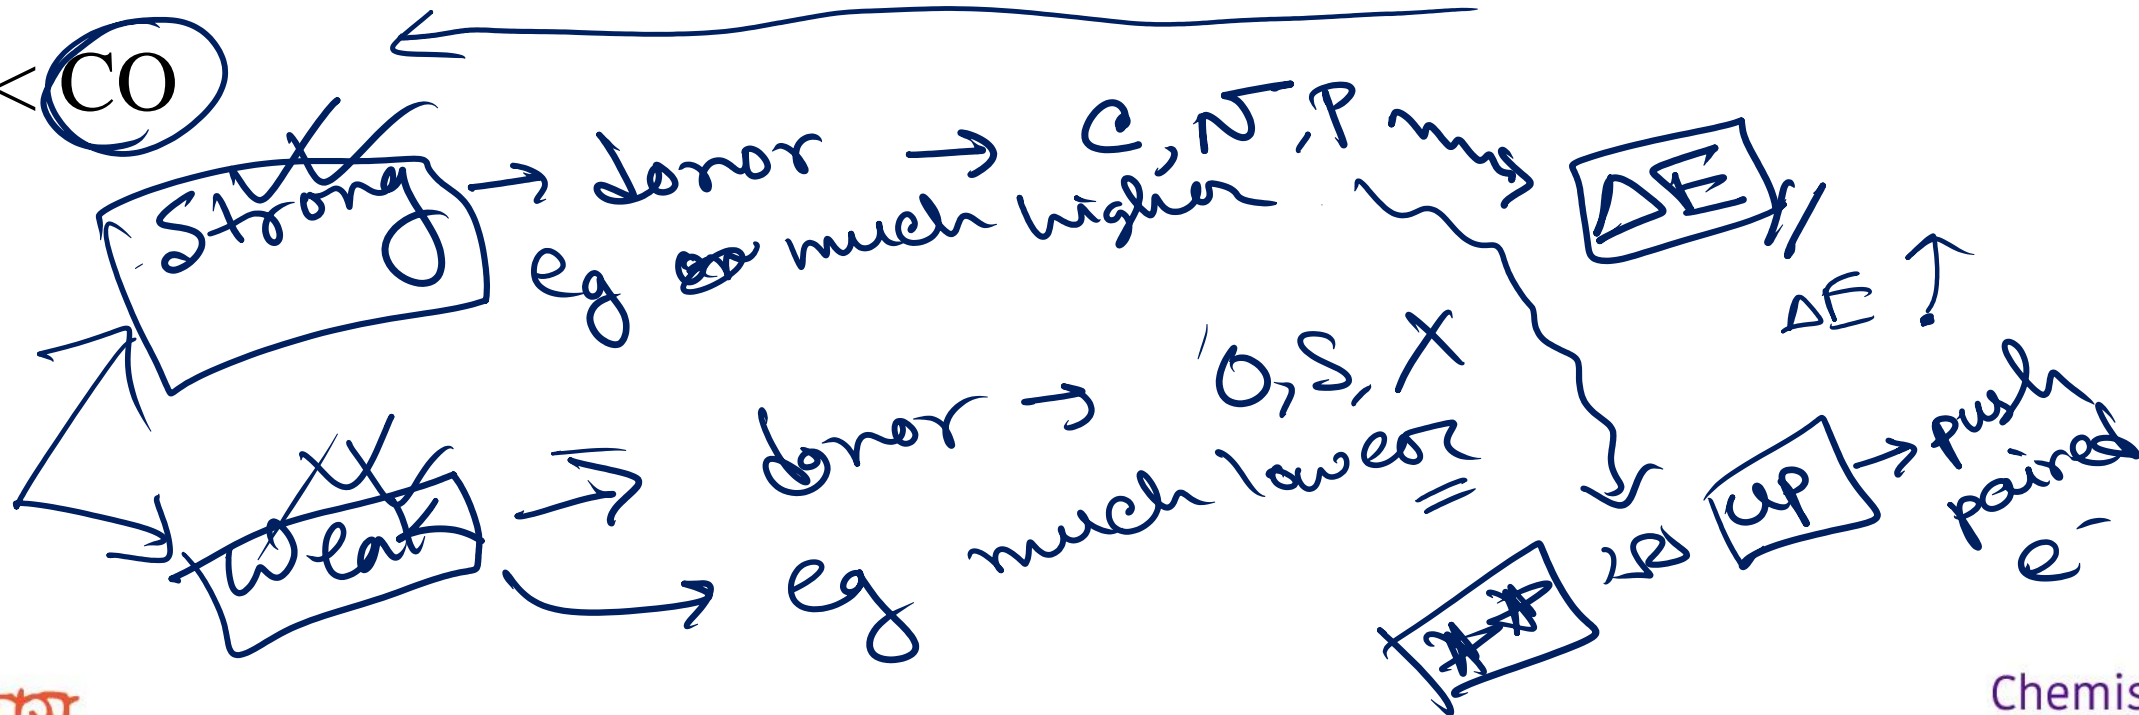 < CO
Strong → donor → C, N, P ΔE
eg much higher
ΔE ↑
Weak → donor → O, S, X
eg much lower
up → push
paired
e⁻
Chemis